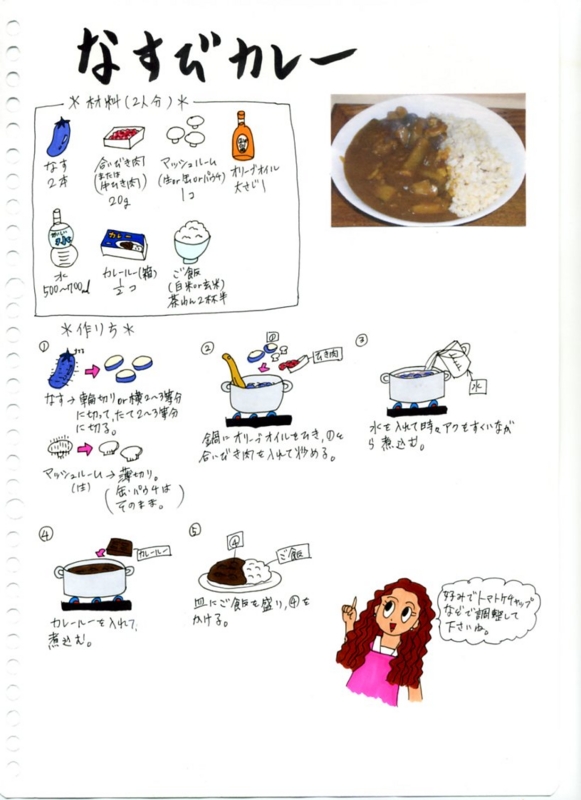 なすびカレー
＊材料(2人分)＊
なす
2本
合いびき肉
(または
牛ひき肉)
20g
マッシュルーム
(生or缶orパウチ)
1コ
オリーブオイル
大さじ1
おいしい
水
水
500〜700ml
カレー
カレールー(箱)
1/2コ
ご飯
(白米or玄米)
茶わん2杯半
＊作り方＊
①
なす→輪切りor横2〜3等分
に切って、たて2〜3等分
に切る。
マッシュルーム→薄切り。
(生)
(缶・パウチは
そのまま。)
②
①
ひき肉
鍋にオリーブオイルをひき、①と
合いびき肉を入れて炒める。
③
水
水を入れて時々アクをすくいなが
ら煮込む。
④
カレールー
カレールーを入れて、
煮込む。
⑤
④
ご飯
皿にご飯を盛り、④を
かける。
好みでトマトケチャップ
などで調整して
下さいね。